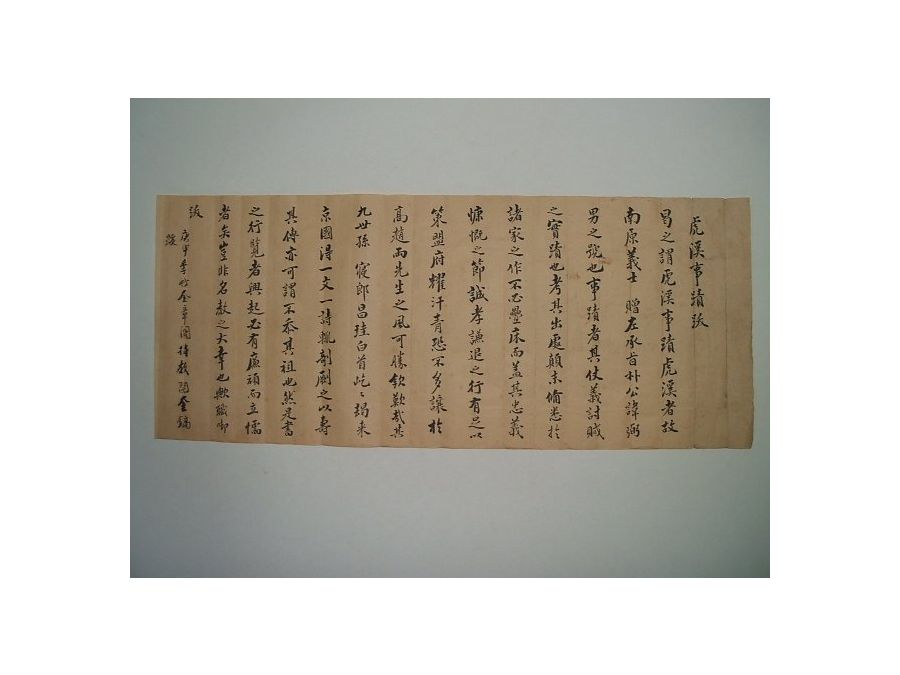 虎溪事蹟跋
曷之謂虎溪事蹟虎溪者故
南原義士 贈左承旨朴公諱弼
男之號也事蹟者其仗義討賊
之實蹟也考其出處顛末備悉於
諸家之作不必疊床而盖其忠義
慷慨之節誠孝謙退之行有足以
策盟府耀汗青恐不多讓於
高趙兩先生之風可勝欽歎哉其
九世孫 寢郎昌珪白首屹〻竭来
京國得一文一詩輒剞劂之以壽
其傳亦可謂不忝其祖也然是書
之行覽者興起必有廉頑而立懦
者矣豈非名教之大幸也歟職卿
跋
庚申季 奎章閣待教閔奎鎬
跋